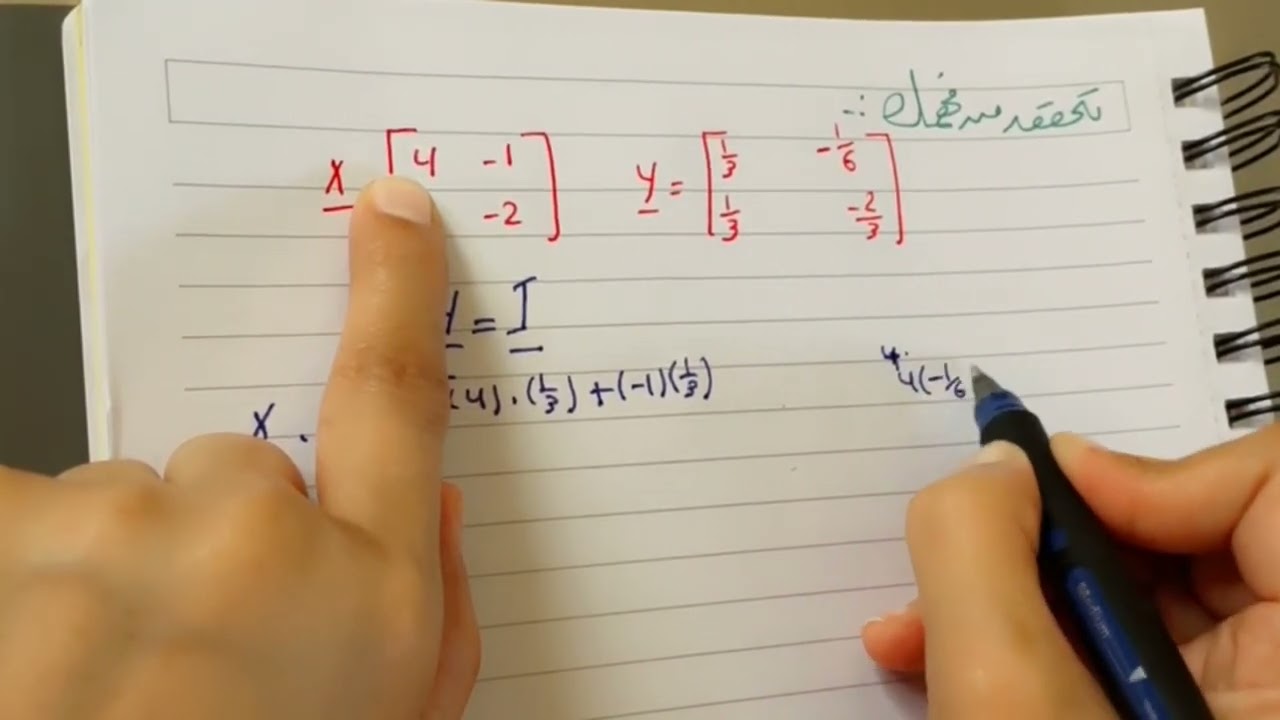 تحقق من فهمك :-
X [4 -1
-2]
y = [1/3 -1/6
1/3 -2/3]
y = I
X . (4).(1/3)+(-1)(1/3)
4(-1/6
Medium